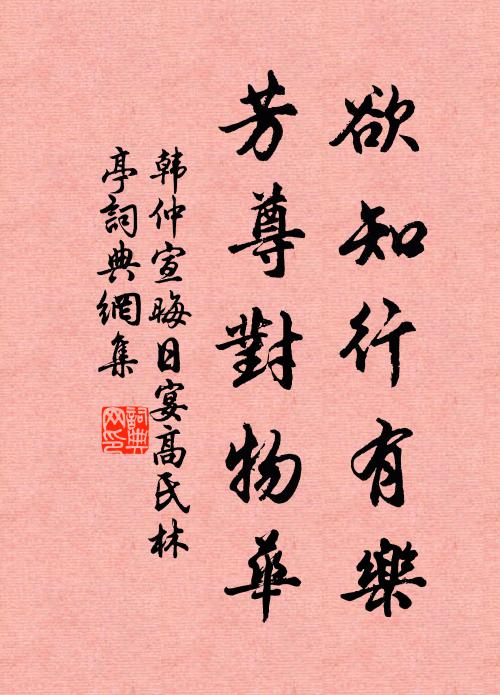 欲知行有樂
芳尊對物華
韩仲宣晦日宴高氏林
亭詞典網集
詞典
网印